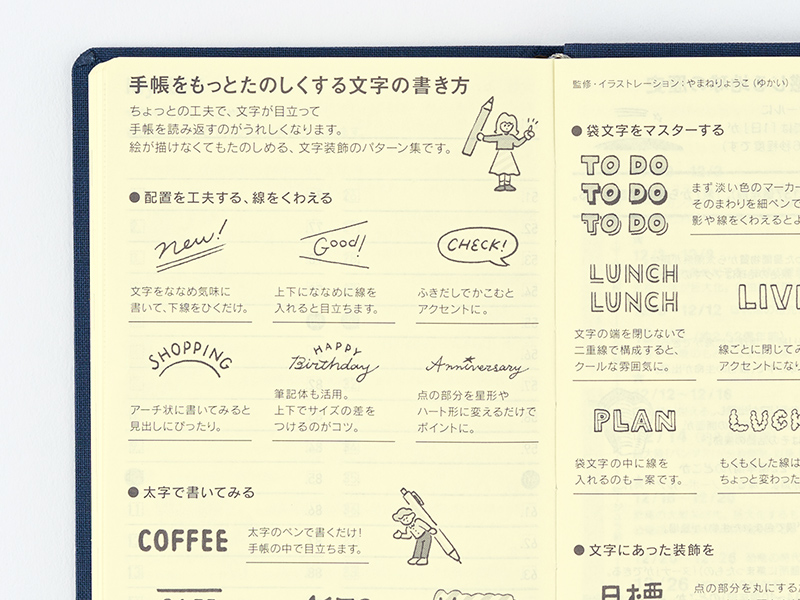 手帳をもっとたのしくする文字の書き方
ちょっとの工夫で、文字が目立って
手帳を読み返すのがうれしくなります。
絵が描けなくてもたのしめる、文字装飾のパターン集です。
●配置を工夫する、線をくわえる
new!
Good!
CHECK!
文字をななめ気味に
書いて、下線をひくだけ。
上下にななめに線を
入れると目立ちます。
ふきだしでかこむと
アクセントに。
SHOPPING
HAPPY
Birthday
Anniversary
アーチ状に書いてみると
見出しにぴったり。
筆記体も活用。
上下でサイズの差を
つけるのがコツ。
点の部分を星形や
ハート形に変えるだけで
ポイントに。
●太字で書いてみる
COFFEE
太字のペンで書くだけ!
手帳の中で目立ちます。
監修・イラストレーション:やまねりょうこ(ゆかい)
●袋文字をマスターする
TO DO
TO DO
TO DO
まず淡い色のマーカー
そのまわりを細ペンで
影や線をくわえると
LUNCH
LUNCH
LIV
文字の端を閉じないで
二重線で構成すると、
クールな雰囲気に。
線ごとに閉じてみ
アクセントにな
PLAN
LUCK
袋文字の中に線を
入れるのも一案です。
もくもくした線は
ちょっと変わった
●文字にあった装飾を
目標
点の部分を丸にする